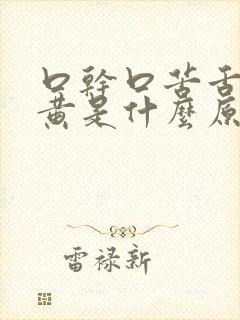 口幹口苦舌
黄是什麼原
雷禄新